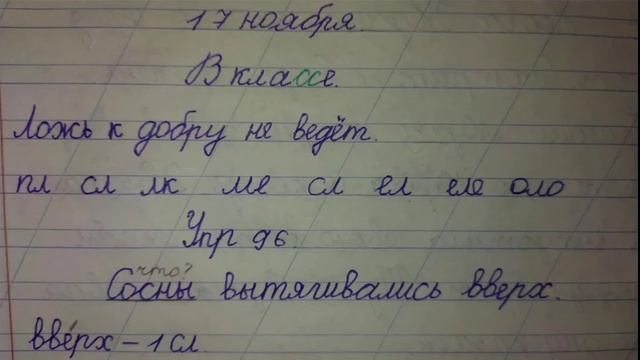 17 ноября.
В классе.
Ложь к добру не ведёт.
пл сл лк ме сл ел еле оло
Упр 96.
что?
Сосны вытягивались вверх.
вве́рх – 1 сл.